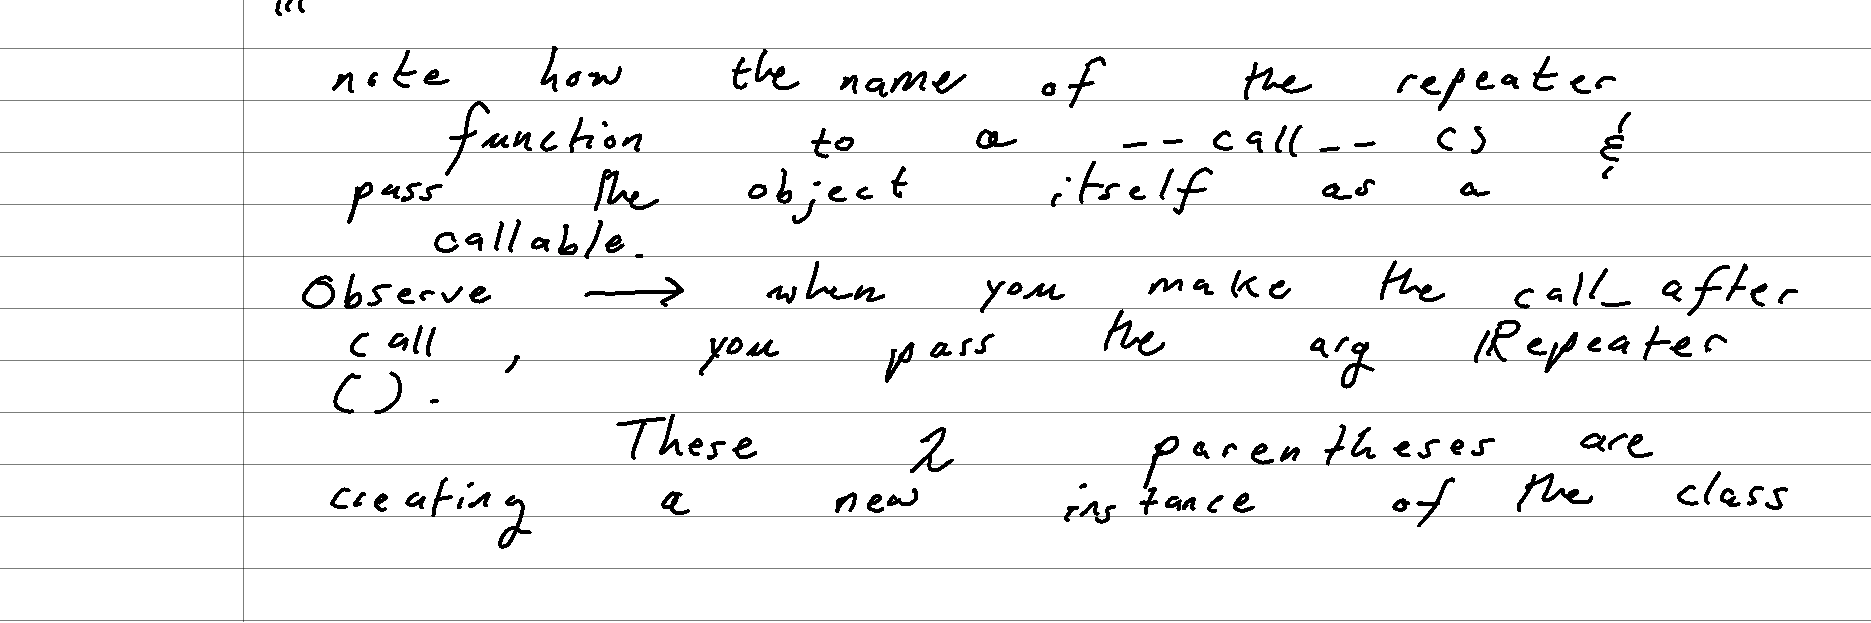 note how the name of the repeater
function to a __call__ () &
pass the object itself as a
callable.
Observe → when you make the call_after
call, you pass the arg Repeater
().
These 2 parentheses are
creating a new instance of the class